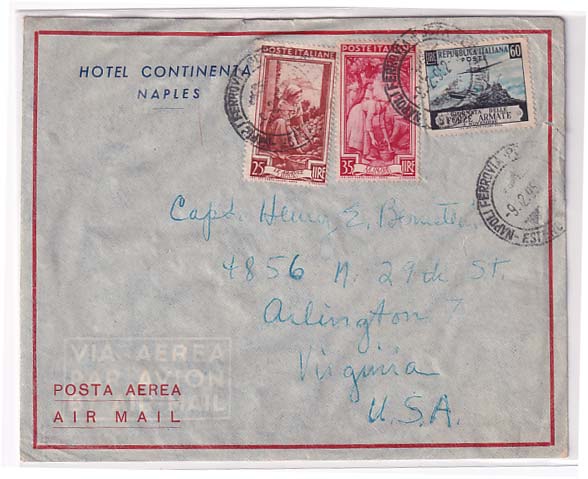 HOTEL CONTINENTA
NAPLES
POSTE ITALIANE
25 LIRE
POSTE ITALIANE
35 LIRE
REPUBBLICA ITALIANA 60
POSTE
GIORNATA DELLE
FORZE ARMATE
NAPOLI FERROVIA
-9.2.
NAPOLI FERROVIA
-ESTERO
Capt. Henry E.
4856 N. 29th St.
Arlington 7
Virginia
U.S.A.
VIA AEREA
PAR AVION
AIR MAIL
POSTA AEREA
AIR MAIL